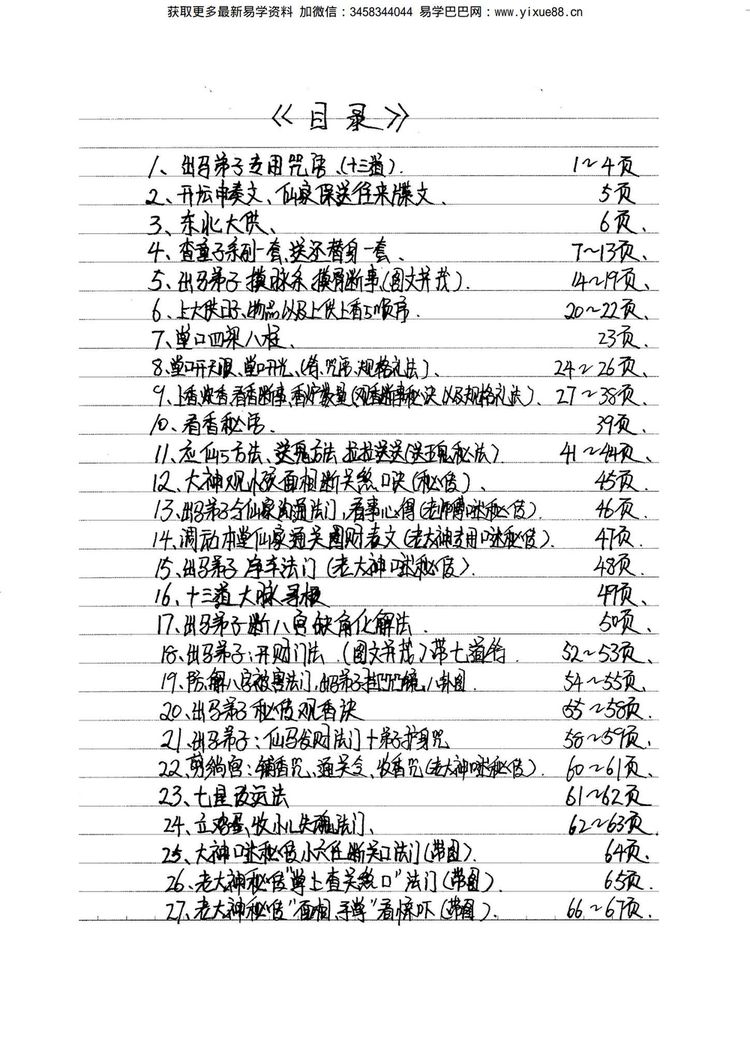 获取更多最新易学资料 加微信：3458344044 易学巴巴网：www.yixue88.cn
《目录》
1、出马弟子专用咒语、(十三道). 1～4页
2、开坛申奏文、仙家保送往来牒文、 5页
3、东北大供、 6页、
4、查童子系列一套、送还替身一套、 7～13页、
5、出马弟子摸脉条、摸骨断事(图文并茂). 14～19页、
6、上大供日子、物品以及上供上香顺序. 20～22页、
7、堂口四梁八柱、 23页、
8、堂口开天眼、堂口开光、(条、咒语、规格礼法). 24～26页、
9、上香、发香、看香断事、香炉数量(观香断事秘诀以及规格礼法). 27～38页、
10、看香秘语. 39页、
11、应仙方法、送鬼方法、拉拉送送(送鬼秘法) 41～44页、
12、大神观小孩面相断关煞口诀(秘传). 45页、
13、出马弟子合仙家沟通法门、看事心得(老师傅口述秘传). 46页、
14、调动本堂仙家通关圆财表文(老大神专用口述秘传). 47页、
15、出马弟子净车法门(老大神口述秘传). 48页、
16、十三道大脉寻梗 49页、
17、出马弟子断八宫缺角化解法. 50页、
18、出马弟子：开财门法、(图文并茂)带七道符. 52～53页、
19、防解八字被害法门、出马弟子挂咒镜、八卦图. 54～55页、
20、出马弟子秘传观香诀 55～58页.
21、出马弟子：仙马发财法门＋弟子护身咒 58～59页.
22、翦绺宫：铺香咒、通关令、收香咒(老大神口述秘传). 60～61页、
23、七星改运法 61～62页
24、立鸡蛋、收小儿失魂法门、 62～63页、
25、大神口述秘传小六壬断关口法门(带图). 64页、
26、老大神秘传"掌上查关煞口"法门(带图). 65页、
27、老大神秘传"面相、手掌"看惊吓(带图). 66～67页.